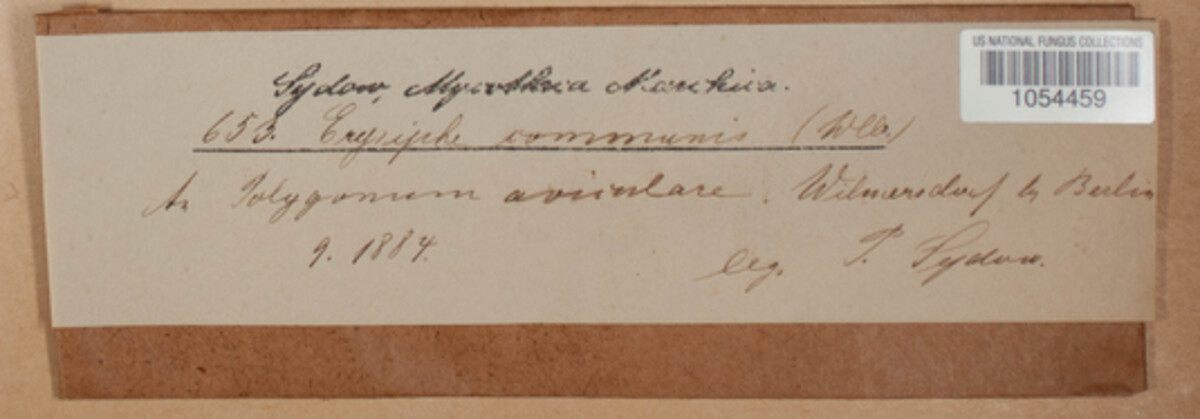 US NATIONAL FUNGUS COLLECTIONS
1054459
Sydow, Mycotheca Marchica.
653. Erysiphe communis (Wllr.)
An Polygonum aviculare. Wilmersdorf b. Berlin
9. 1884.
leg. P. Sydow.